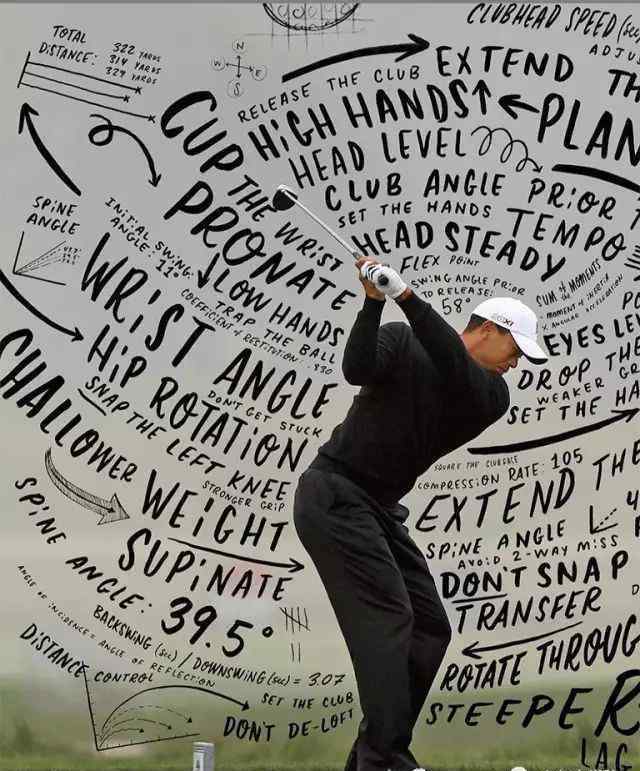 CLUBHEAD SPEED (sec
ADJUS
TOTAL
DISTANCE:
322 YARDS
314 YARDS
324 YARDS
N
W
E
S
RELEASE THE CLUB
EXTEND TH
HIGH HANDS
PLAN
HEAD LEVEL
CLUB ANGLE PRIOR T
SET THE HANDS
TEMPO
HEAD STEADY
FLEX POINT
SWING ANGLE PRIOR
TO RELEASE:
58°
CUP THE WRIST
PRONATE
SLOW HANDS
TRAP THE BALL
COEFFICIENT OF RESTITUTION: .830
INITIAL SWING
ANGLE: 12°
SPINE
ANGLE
WRIST ANGLE
DON'T GET STUCK
HIP ROTATION
SNAP THE LEFT KNEE
STRONGER GRIP
SHALLOWER
WEIGHT
SUPINATE
SPINE ANGLE: 39.5°
BACKSWING (sec) / DOWNSWING (sec) = 3.07
ANGLE OF INCIDENCE = ANGLE OF REFLECTION
DISTANCE
CONTROL
SET THE CLUB
DON'T DE-LOFT
SUM of the MOMENTS
= MOMENT of INERTIA
x ANGULAR ACCELERATION
EYES LE
DROP THE
WEAKER GR
SET THE HA
SQUARE THE CLUBFACE
COMPRESSION RATE: 105
EXTEND THE
SPINE ANGLE
AVOID 2-WAY MISS
DON'T SNAP
TRANSFER
ROTATE THROUG
STEEPE
R
LAG